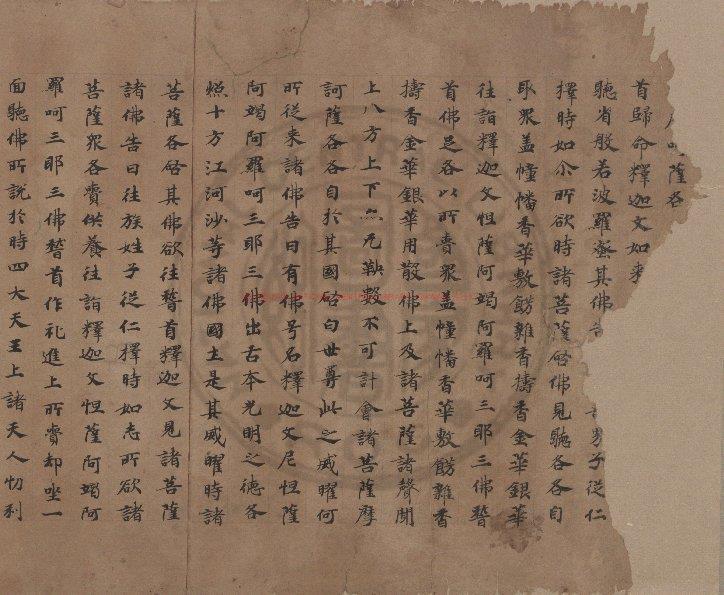 訶薩各
首歸命釋迦文如来
聽省般若波羅蜜其佛告 男子從仁
擇時如尒所欲時諸菩薩啓佛見聽各各自
取衆盖幢幡香華敷飾雜香擣香金華銀華
往詣釋迦文怛薩阿竭阿羅呵三耶三佛稽
首佛足各以所賷衆盖幢幡香華敷飾雜香
擣香金華銀華用散佛上及諸菩薩諸聲聞
上八方上下亦无鞅數不可計會諸菩薩摩
訶薩各各自於其國啓白世尊此之威曜何
所從来諸佛告曰有佛号名釋迦文尼怛薩
阿竭阿羅呵三耶三佛出舌本光明之德各
照十方江河沙等諸佛國土是其威曜時諸
菩薩各啓其佛欲往稽首釋迦文見諸菩薩
諸佛告曰往族姓子從仁擇時如志所欲諸
菩薩衆各賷供養往詣釋迦文怛薩阿竭阿
羅呵三耶三佛稽首作礼進上所賷却坐一
面聽佛所說於時四大天王上諸天人忉利